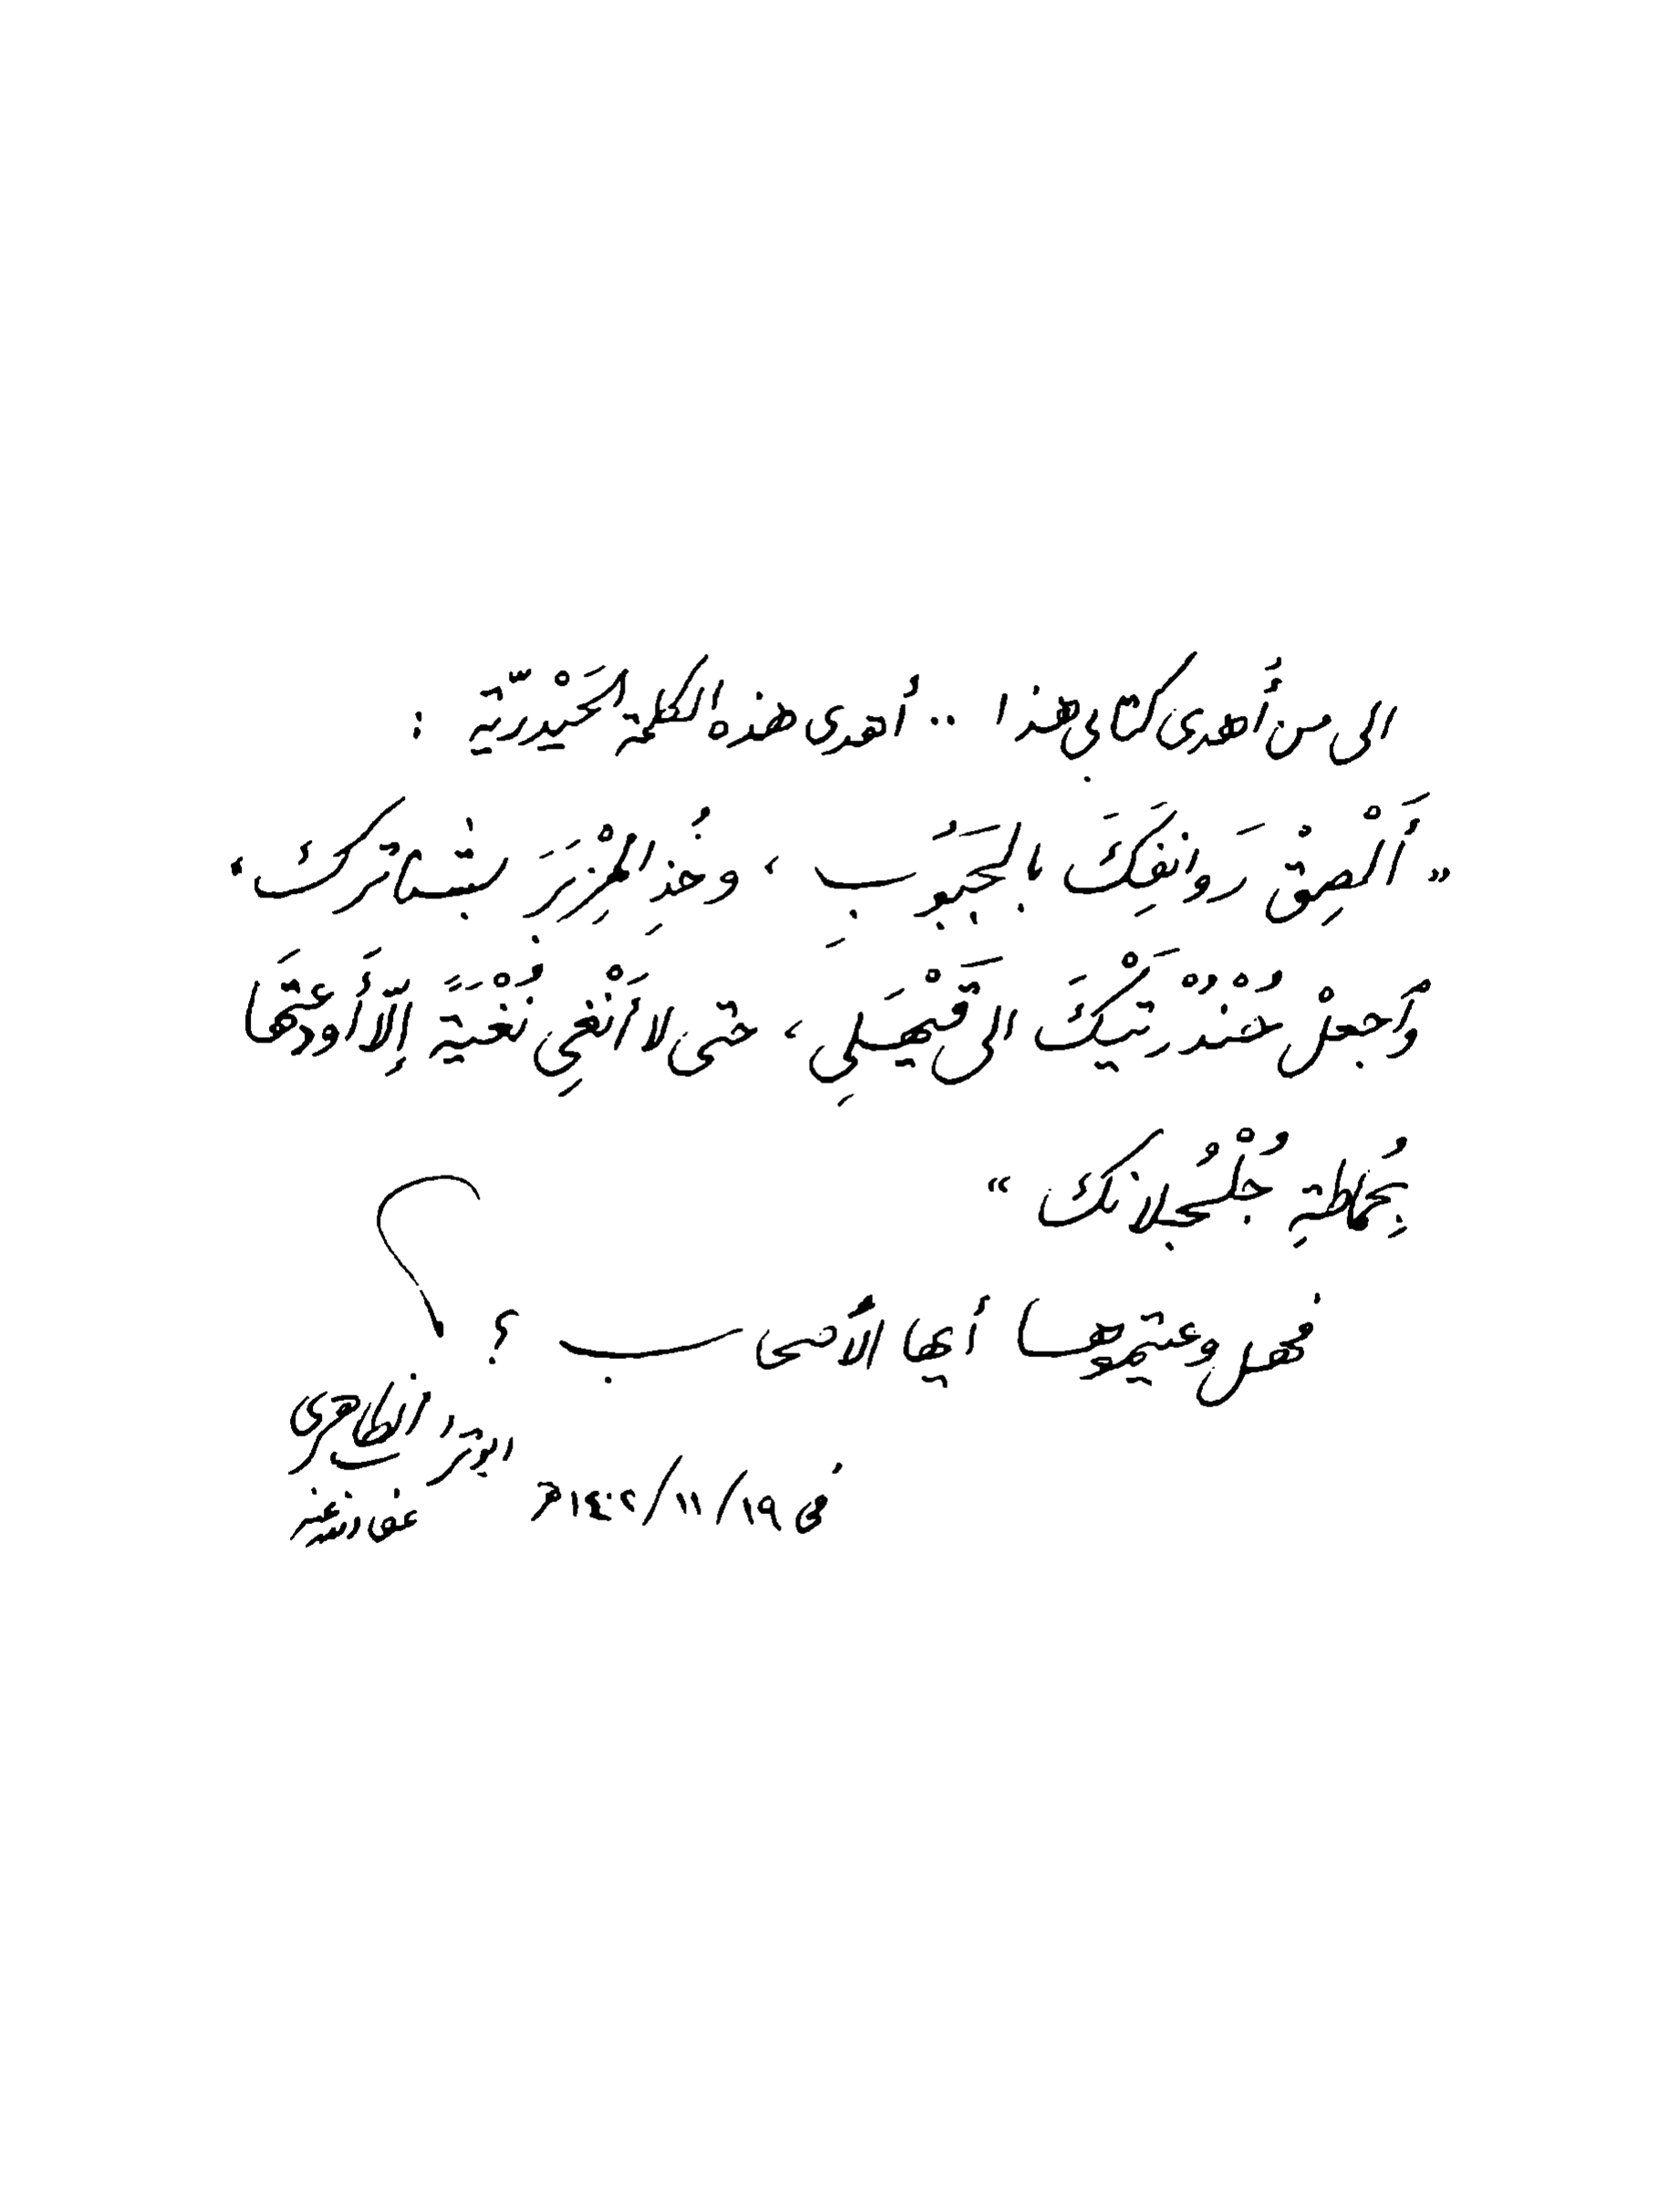 الى من أُهدى كتابى هذا .. أُهدى هذه الكلمة الحَيْدَرِيَّة :
« أَلْصِقْ رَوانِفَكَ بالجَبُوبِ ، وخُذِ المِزْبَرَ بشَناتِركَ ،
وَٱجعلْ حُنْدُرَتَيْكَ الى قَيْهَلِى ، حتى لا أَنْغِى نُغْيَةً إِلّا أَودَعْتَها
بِحُماطةِ جُلْجُلانكَ »
فهل وعيتموها أيها الأصحاب ؟
ابو تراب الظاهرى
عفا الله عنه
فى ١٩/ ١١/ ١٤٠٢ هـ